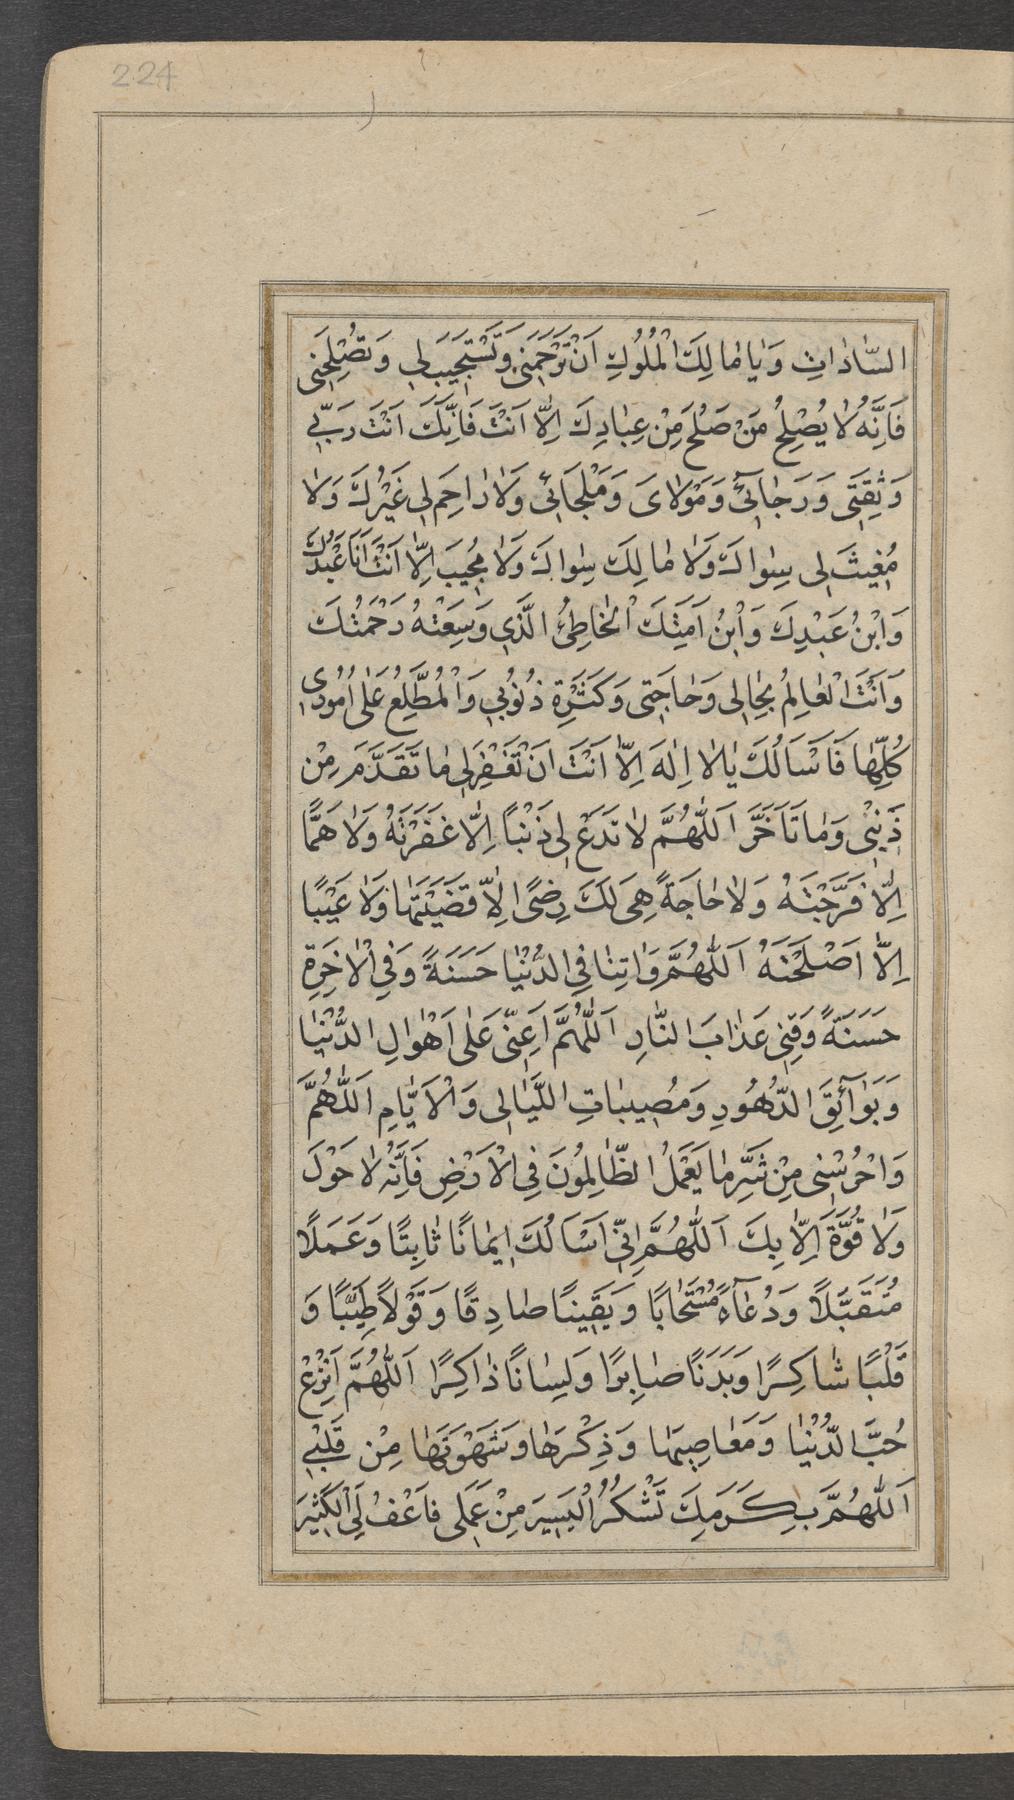 224
السَّادَاتِ وَيَا مَالِكَ الْمُلُوكِ اَنْ تَرْحَمَنِي وَتَسْتَجِيبَ لِي وَتُصْلِحَنِي
فَاِنَّهُ لَا يُصْلِحُ مَنْ صَلُحَ مِنْ عِبَادِكَ اِلَّا اَنْتَ فَاِنَّكَ اَنْتَ رَبِّي
وَثِقَتِي وَرَجَائِي وَمَوْلَايَ وَمَلْجَائِي وَلَا رَاحِمَ لِي غَيْرُكَ وَلَا
مُغِيثَ لِي سِوَاكَ وَلَا مَالِكَ سِوَاكَ وَلَا مُجِيبَ اِلَّا اَنْتَ اَنَا عَبْدُكَ
وَابْنُ عَبْدِكَ وَابْنُ اَمَتِكَ الْخَاطِئُ الَّذِي وَسِعَتْهُ رَحْمَتُكَ
وَاَنْتَ الْعَالِمُ بِحَالِي وَحَاجَتِي وَكَثْرَةِ ذُنُوبِي وَالْمُطَّلِعُ عَلَى اُمُورِي
كُلِّهَا فَاَسْاَلُكَ يَا لَا اِلٰهَ اِلَّا اَنْتَ اَنْ تَغْفِرَ لِي مَا تَقَدَّمَ مِنْ
ذَنْبِي وَمَا تَاَخَّرَ اَللّٰهُمَّ لَا تَدَعْ لِي ذَنْبًا اِلَّا غَفَرْتَهُ وَلَا هَمًّا
اِلَّا فَرَّجْتَهُ وَلَا حَاجَةً هِيَ لَكَ رِضًى اِلَّا قَضَيْتَهَا وَلَا عَيْبًا
اِلَّا اَصْلَحْتَهُ اَللّٰهُمَّ وَاٰتِنَا فِي الدُّنْيَا حَسَنَةً وَفِي الْاٰخِرَةِ
حَسَنَةً وَقِنِي عَذَابَ النَّارِ اَللّٰهُمَّ اَعِنِّي عَلَى اَهْوَالِ الدُّنْيَا
وَبَوَآئِقَ الدُّهُورِ وَمُصِيبَاتِ اللَّيَالِي وَالْاَيَّامِ اَللّٰهُمَّ
وَاحْرُسْنِي مِنْ شَرِّ مَا يَعْمَلُ الظَّالِمُونَ فِي الْاَرْضِ فَاِنَّهُ لَا حَوْلَ
وَلَا قُوَّةَ اِلَّا بِكَ اَللّٰهُمَّ اِنِّي اَسْاَلُكَ اِيمَانًا ثَابِتًا وَعَمَلًا
مُتَقَبَّلًا وَدُعَآءً مُسْتَجَابًا وَيَقِينًا صَادِقًا وَقَوْلًا طَيِّبًا وَ
قَلْبًا شَاكِرًا وَبَدَنًا صَابِرًا وَلِسَانًا ذَاكِرًا اَللّٰهُمَّ انْزِعْ
حُبَّ الدُّنْيَا وَمَعَاصِيهَا وَذِكْرَهَا وَشَهْوَتَهَا مِنْ قَلْبِي
اَللّٰهُمَّ بِكَرَمِكَ تَشْكُرُ الْيَسِيرَ مِنْ عَمَلِي فَاعْفُ لِيَ الْكَثِيرَ